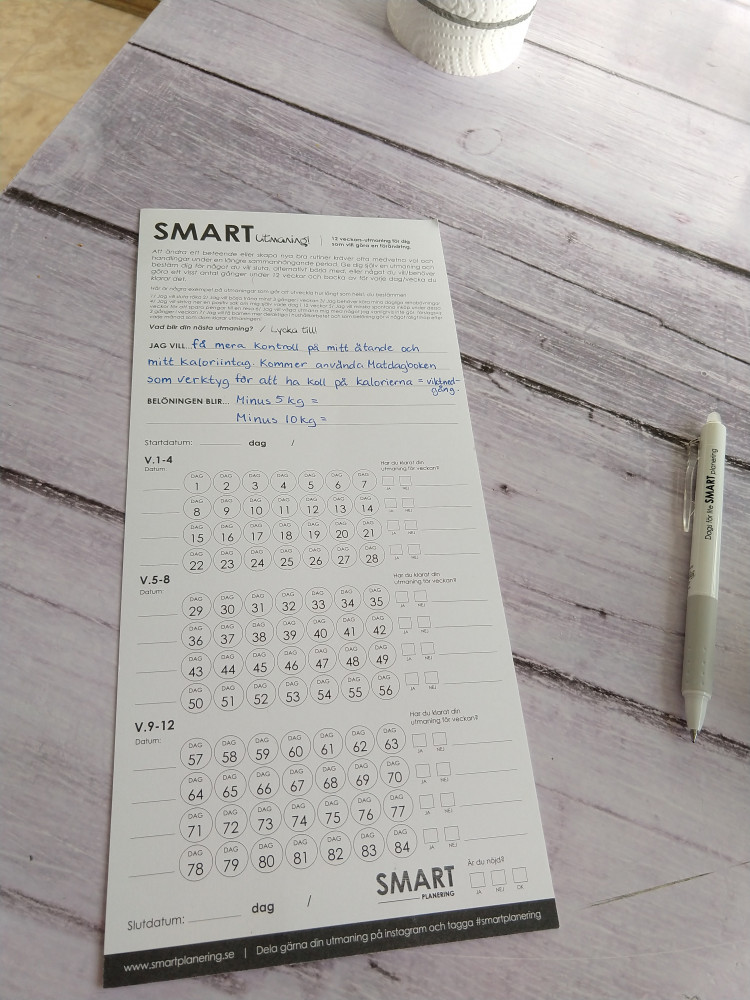 SMART utmaning!
12 veckors-utmaning för dig
som vill göra en förändring.
Att ändra ett beteende eller skapa nya bra rutiner kräver ofta medvetna val och
handlingar under en längre sammanhängande period. Ge dig själv en utmaning och
bestäm dig för något du vill sluta, alternativt börja med, eller något du vill/behöver
göra ett visst antal gånger under 12 veckor och bocka av för varje dag/vecka du
klarar det.
Vad blir din nästa utmaning? / Lycka till!
JAG VILL få mera kontroll på mitt ätande och
mitt kaloriintag. Kommer använda Matdagboken
som verktyg för att ha koll på kalorierna = viktned-
gång.
BELÖNINGEN BLIR... Minus 5 kg =
Minus 10 kg =
Startdatum: dag /
V.1-4
Datum:
Har du klarat din
utmaning för veckan?
DAG DAG DAG DAG DAG DAG DAG
1 2 3 4 5 6 7
JA NEJ
DAG DAG DAG DAG DAG DAG DAG
8 9 10 11 12 13 14
JA NEJ
DAG DAG DAG DAG DAG DAG DAG
15 16 17 18 19 20 21
JA NEJ
DAG DAG DAG DAG DAG DAG DAG
22 23 24 25 26 27 28
JA NEJ
V.5-8
Datum:
Har du klarat din
utmaning för veckan?
DAG DAG DAG DAG DAG DAG DAG
29 30 31 32 33 34 35
JA NEJ
DAG DAG DAG DAG DAG DAG DAG
36 37 38 39 40 41 42
JA NEJ
DAG DAG DAG DAG DAG DAG DAG
43 44 45 46 47 48 49
JA NEJ
DAG DAG DAG DAG DAG DAG DAG
50 51 52 53 54 55 56
JA NEJ
V.9-12
Datum:
Har du klarat din
utmaning för veckan?
DAG DAG DAG DAG DAG DAG DAG
57 58 59 60 61 62 63
JA NEJ
DAG DAG DAG DAG DAG DAG DAG
64 65 66 67 68 69 70
JA NEJ
DAG DAG DAG DAG DAG DAG DAG
71 72 73 74 75 76 77
JA NEJ
DAG DAG DAG DAG DAG DAG DAG
78 79 80 81 82 83 84
JA NEJ
SMART
PLANERING
Är du nöjd?
JA NEJ OK
Slutdatum: dag /
www.smartplanering.se | Dela gärna din utmaning på instagram och tagga #smartplanering
Dags för lite SMART planering